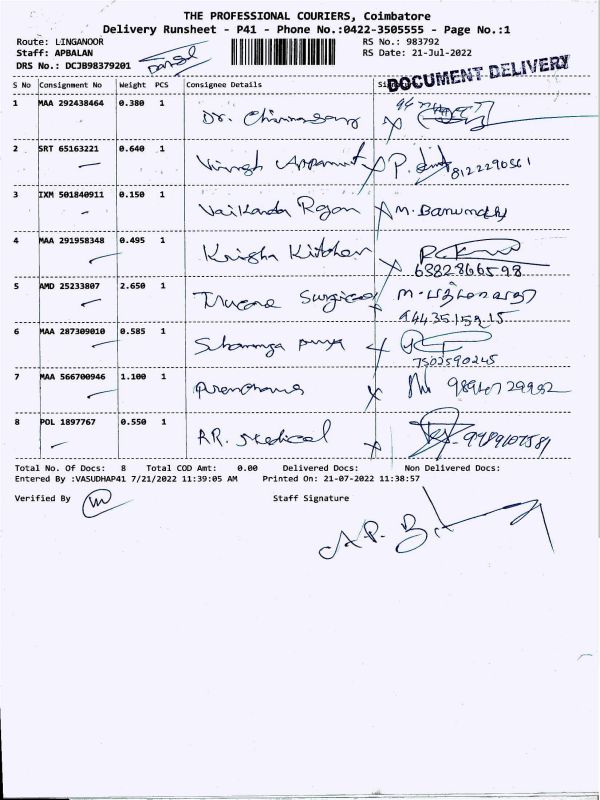 THE PROFESSIONAL COURIERS, Coimbatore
Delivery Runsheet - P41 - Phone No.:0422-3505555 - Page No.:1
Route: LINGANOOR RS No.: 983792
Staff: APBALAN RS Date: 21-Jul-2022
DRS No.: DCJB98379201
DOCUMENT DELIVERY
S No Consignment No Weight PCS Consignee Details
1 MAA 292438464 0.380 1 Dr.
2 SRT 65163221 0.640 1 8122290561
3 IXM 501840911 0.150 1 Vaikanda Rajan
4 MAA 291958348 0.495 1 Krisha Kitchen
6382866598
5 AMD 25233807 2.650 1 Surgical
9443515215
6 MAA 287309010 0.585 1 Shanmuga priya
7502590245
7 MAA 566700946 1.100 1
8 POL 1897767 0.550 1 RR. Medical
Total No. Of Docs: 8 Total COD Amt: 0.00 Delivered Docs: Non Delivered Docs:
Entered By :VASUDHAP41 7/21/2022 11:39:05 AM Printed On: 21-07-2022 11:38:57
Verified By Staff Signature